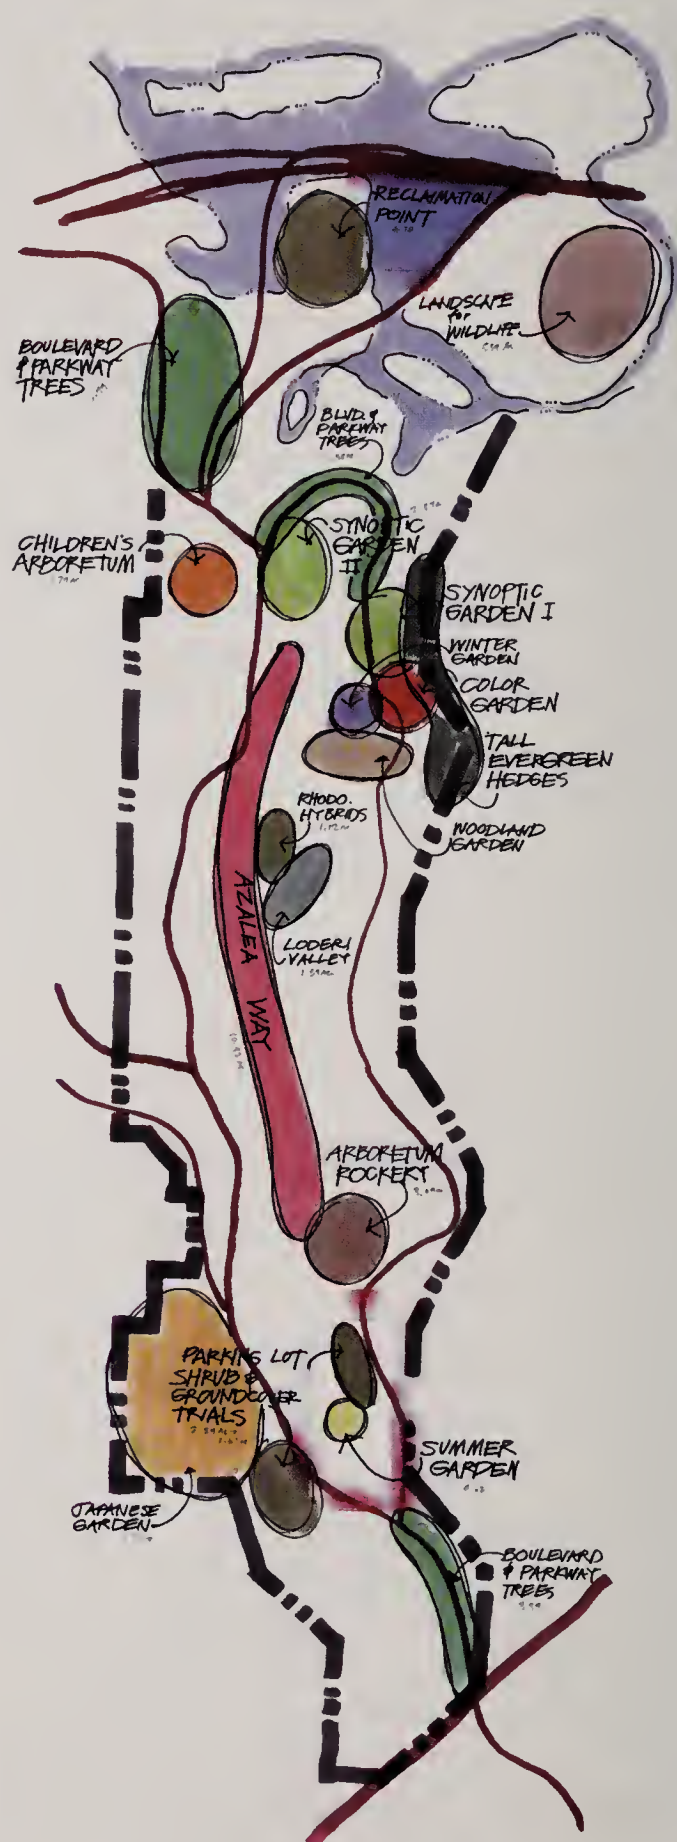 RECLAMATION
POINT
LANDSCAPE
for
WILDLIFE
BOULEVARD
& PARKWAY
TREES
BLVD. &
PARKWAY
TREES
CHILDREN'S
ARBORETUM
SYNOPTIC
GARDEN
II
SYNOPTIC
GARDEN I
WINTER
GARDEN
COLOR
GARDEN
TALL
EVERGREEN
HEDGES
RHODO.
HYBRIDS
WOODLAND
GARDEN
AZALEA WAY
LODERI
VALLEY
ARBORETUM
ROCKERY
PARKING LOT
SHRUB &
GROUNDCOVER
TRIALS
SUMMER
GARDEN
JAPANESE
GARDEN
BOULEVARD
& PARKWAY
TREES